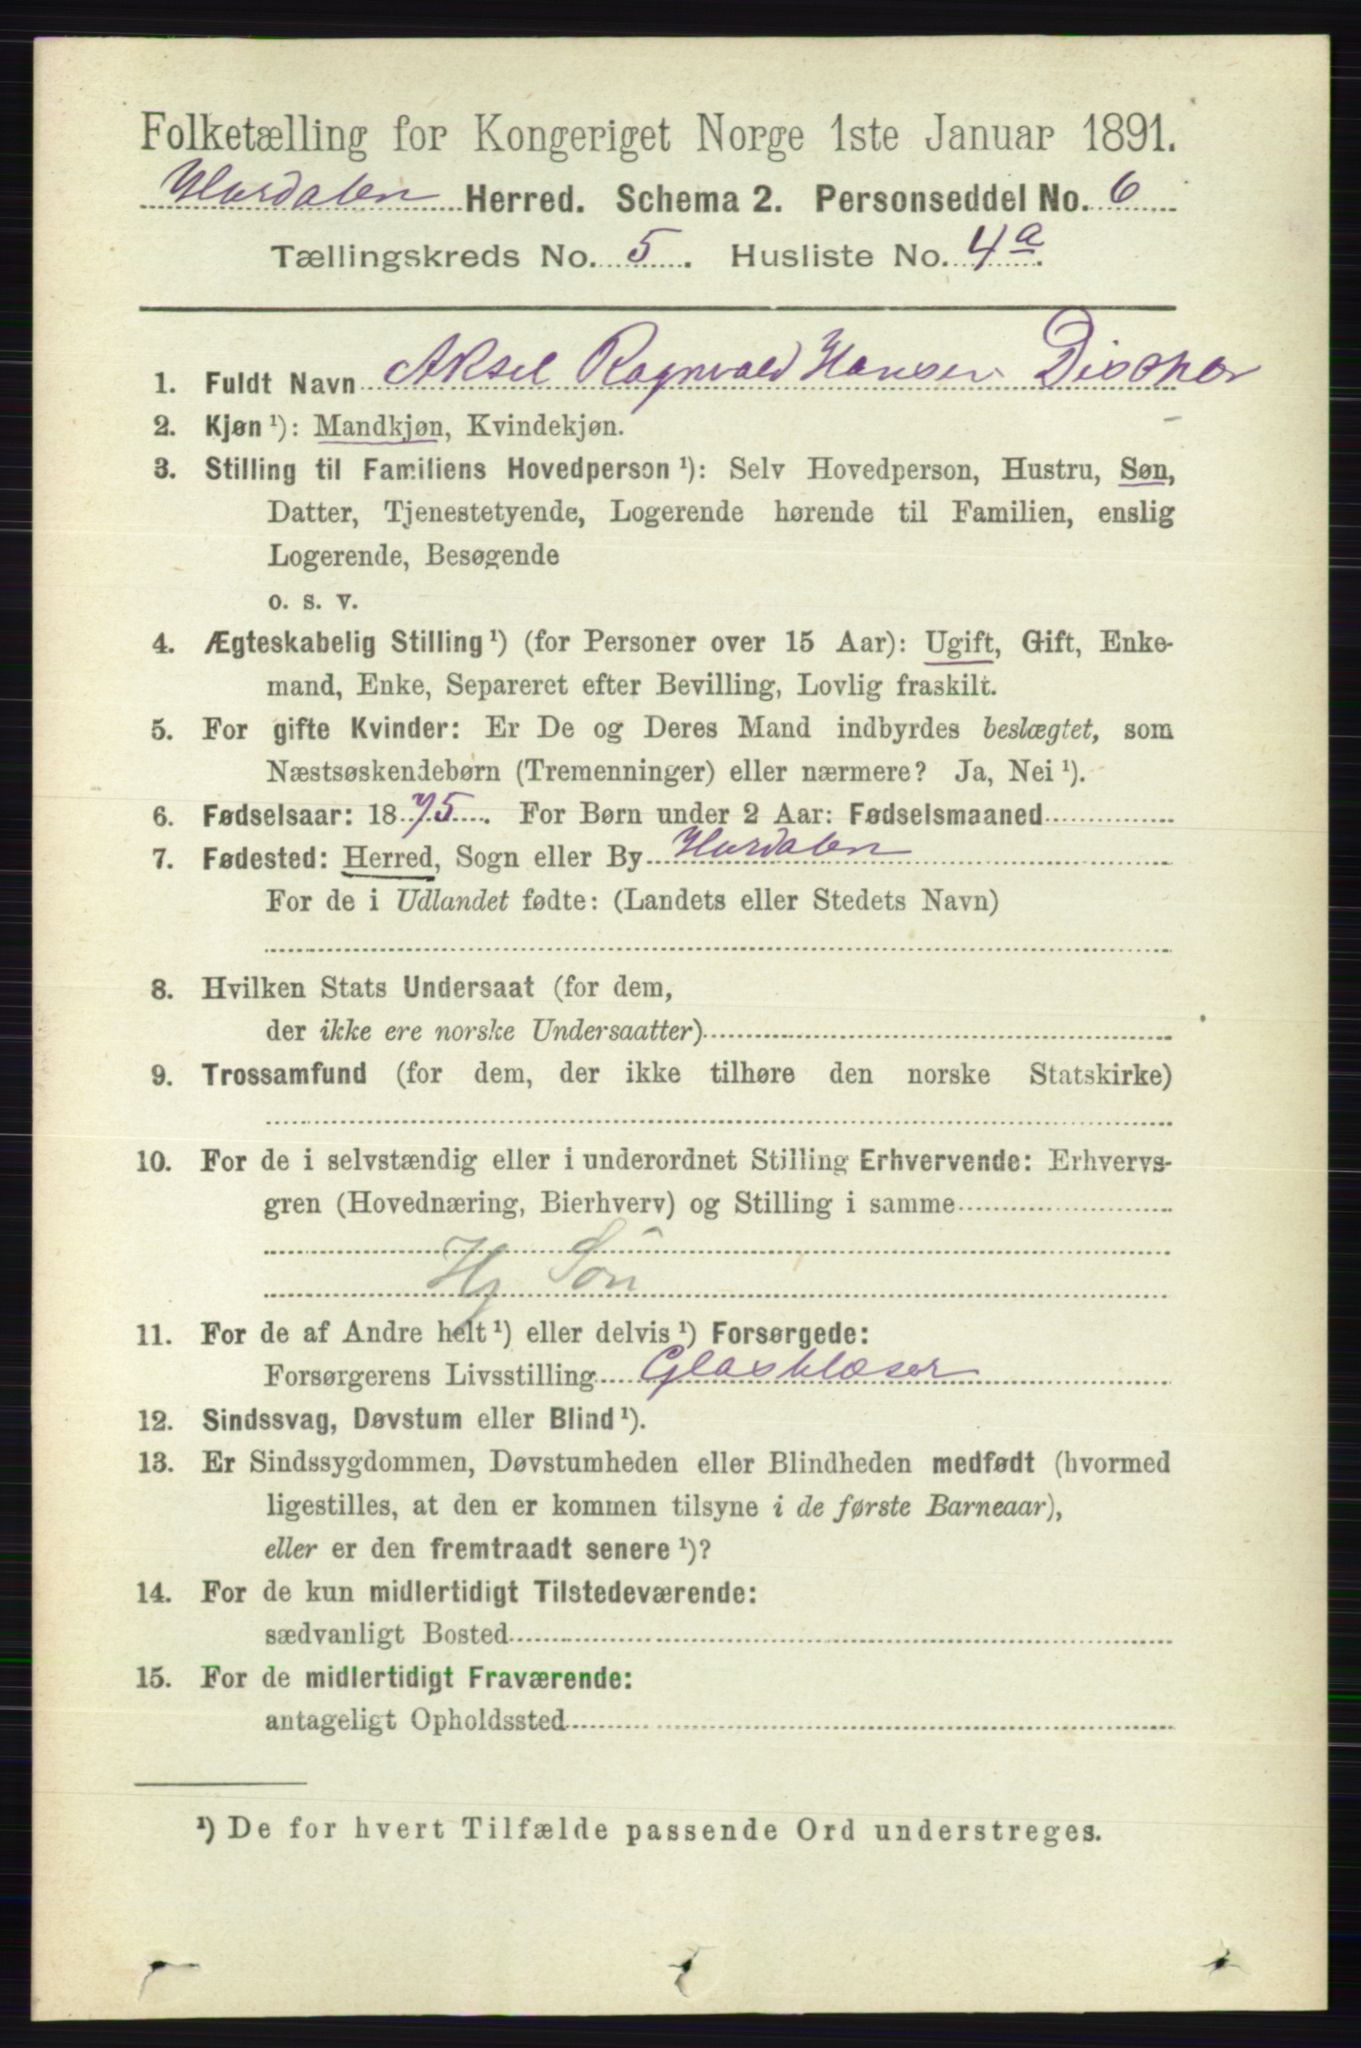 Folketælling for Kongeriget Norge 1ste Januar 1891.
Hurdalen Herred. Schema 2. Personseddel No. 6
Tællingskreds No. 5. Husliste No. 4a.
1. Fuldt Navn Aksel Ragnvald Hansen
2. Kjøn ¹): Mandkjøn, Kvindekjøn.
3. Stilling til Familiens Hovedperson ¹): Selv Hovedperson, Hustru, Søn,
Datter, Tjenestetyende, Logerende hørende til Familien, enslig
Logerende, Besøgende
o. s. v.
4. Ægteskabelig Stilling ¹) (for Personer over 15 Aar): Ugift, Gift, Enke-
mand, Enke, Separeret efter Bevilling, Lovlig fraskilt.
5. For gifte Kvinder: Er De og Deres Mand indbyrdes beslægtet, som
Næstsøskendebørn (Tremenninger) eller nærmere? Ja, Nei ¹).
6. Fødselsaar: 1875. For Børn under 2 Aar: Fødselsmaaned
7. Fødested: Herred, Sogn eller By Hurdalen
For de i Udlandet fødte: (Landets eller Stedets Navn)
8. Hvilken Stats Undersaat (for dem,
der ikke ere norske Undersaatter)
9. Trossamfund (for dem, der ikke tilhøre den norske Statskirke)
10. For de i selvstændig eller i underordnet Stilling Erhvervende: Erhvervs-
gren (Hovednæring, Bierhverv) og Stilling i samme
Hj Søn
11. For de af Andre helt ¹) eller delvis ¹) Forsørgede:
Forsørgerens Livsstilling Glasblæser
12. Sindssvag, Døvstum eller Blind ¹).
13. Er Sindssygdommen, Døvstumheden eller Blindheden medfødt (hvormed
ligestilles, at den er kommen tilsyne i de første Barneaar),
eller er den fremtraadt senere ¹)?
14. For de kun midlertidigt Tilstedeværende:
sædvanligt Bosted
15. For de midlertidigt Fraværende:
antageligt Opholdssted
¹) De for hvert Tilfælde passende Ord understreges.